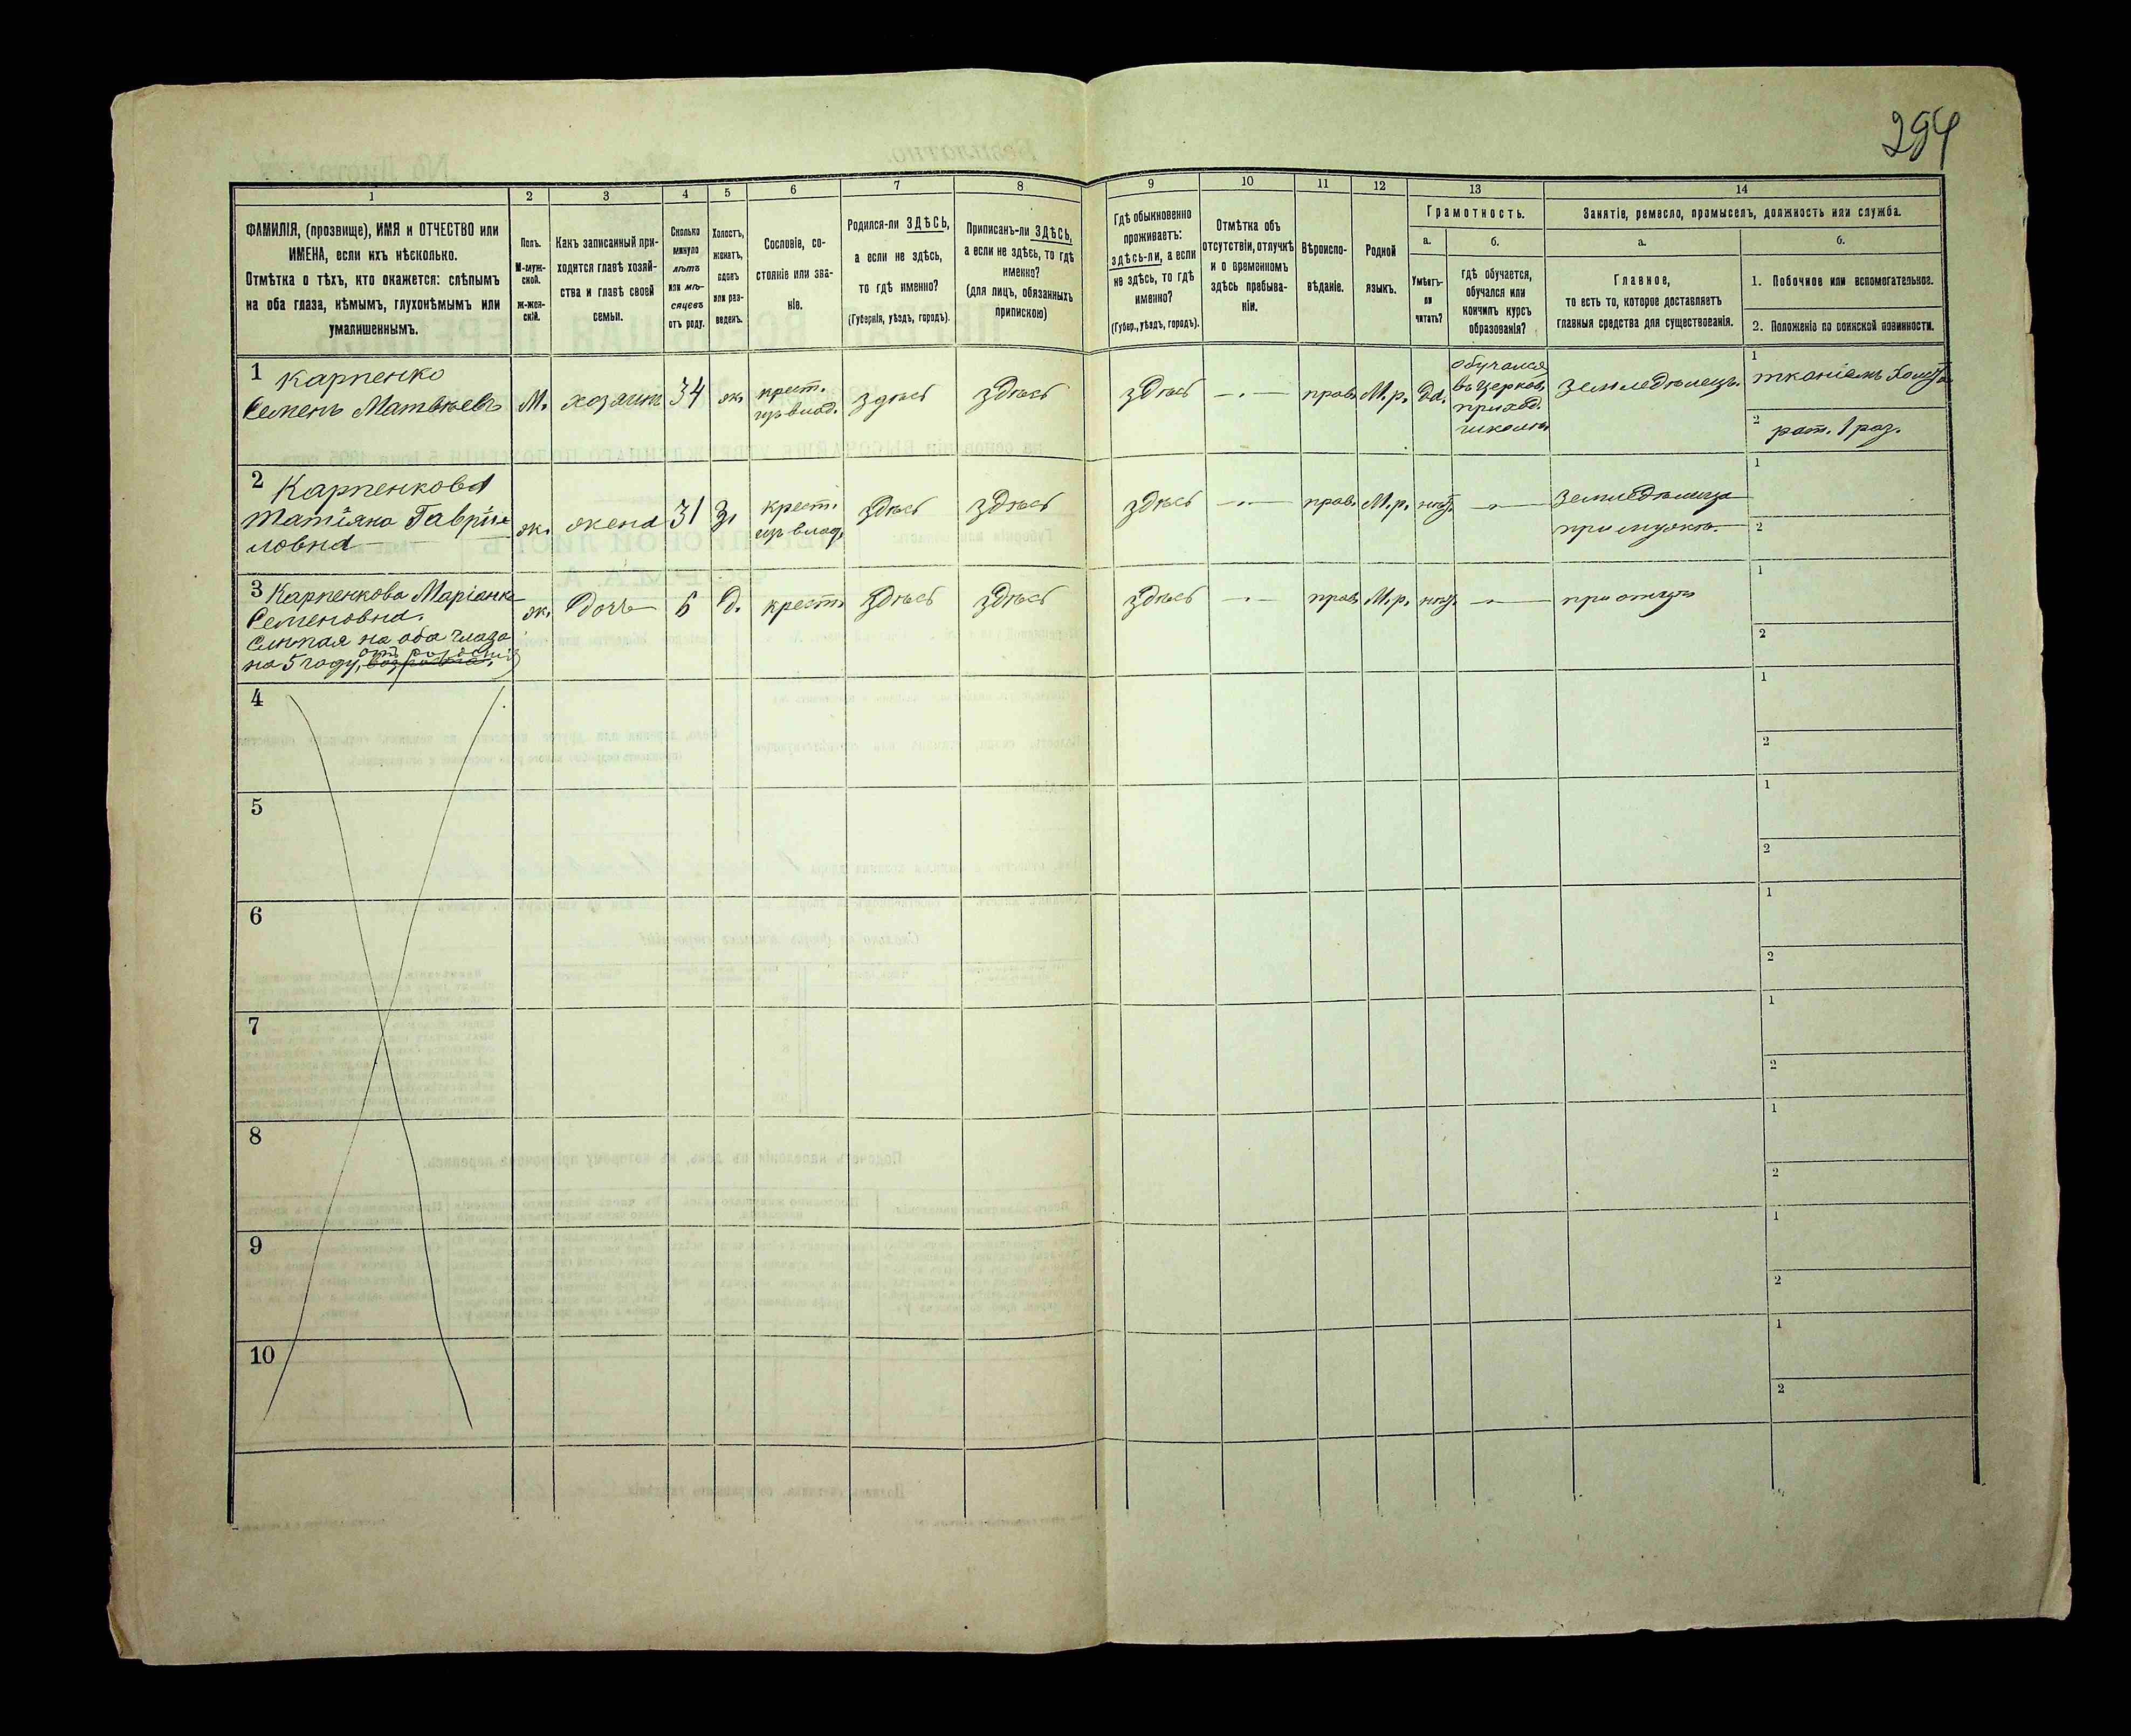 294
1
2
3
4
5
6
7
8
9
10
11
12
13
14
ФАМИЛІЯ, (прозвище), ИМЯ и ОТЧЕСТВО или
ИМЕНА, если ихъ нѣсколько.
Отмѣтка о тѣхъ, кто окажется: слѣпымъ
на оба глаза, нѣмымъ, глухонѣмымъ или
умалишеннымъ.
Полъ.
М-муж-
ской.
ж-жен-
скій.
Какъ записанный при-
ходится главѣ хозяй-
ства и главѣ своей
семьи.
Сколько
минуло
лѣтъ
или мѣ-
сяцевъ
отъ роду.
Холостъ,
женатъ,
вдовъ
или раз-
веденъ.
Сословіе, со-
стояніе или зва-
ніе.
Родился-ли ЗДѢСЬ,
а если не здѣсь,
то гдѣ именно?
(Губернія, уѣздъ, городъ).
Приписанъ-ли ЗДѢСЬ,
а если не здѣсь, то гдѣ
именно?
(для лицъ, обязанныхъ
припискою)
Гдѣ обыкновенно
проживаетъ:
здѣсь-ли, а если
не здѣсь, то гдѣ
именно?
(Губер., уѣздъ, городъ).
Отмѣтка объ
отсутствіи, отлучкѣ
и о временномъ
здѣсь пребыва-
ніи.
Вѣроиспо-
вѣданіе.
Родной
языкъ.
Грамотность.
а.
б.
Умѣетъ-
ли
читать?
гдѣ обучается,
обучался или
кончилъ курсъ
образованія?
Занятіе, ремесло, промыселъ, должность или служба.
а.
б.
Главное,
то есть то, которое доставляетъ
главныя средства для существованія.
1. Побочное или вспомогательное.
2. Положеніе по воинской повинности.
1 Карпенко
Семенъ Матвѣевъ
М.
хозяинъ
34
ж.
крест.
изъ влад.
здѣсь
здѣсь
здѣсь
—.—
прав.
М.р.
да.
обучался
въ церков.
приход.
школѣ
земледѣлецъ
1 тканіемъ холста
2 рат. 1 раз.
2 Карпенкова
Татіяна Гаврiи-
ловна
ж.
жена
31
З.
крест.
изъ влад.
здѣсь
здѣсь
здѣсь
—.—
прав.
М.р.
нѣт.
—.—
при мужѣ
1
2
3 Карпенкова Маріанна
Семеновна.
Слѣпая на оба глаза
на 5 году,
ж.
дочь
6
д.
крест.
здѣсь
здѣсь
здѣсь
—.—
прав.
М.р.
нѣт.
—.—
при отцѣ
1
2
4
1
2
5
1
2
6
1
2
7
1
2
8
1
2
9
1
2
10
1
2